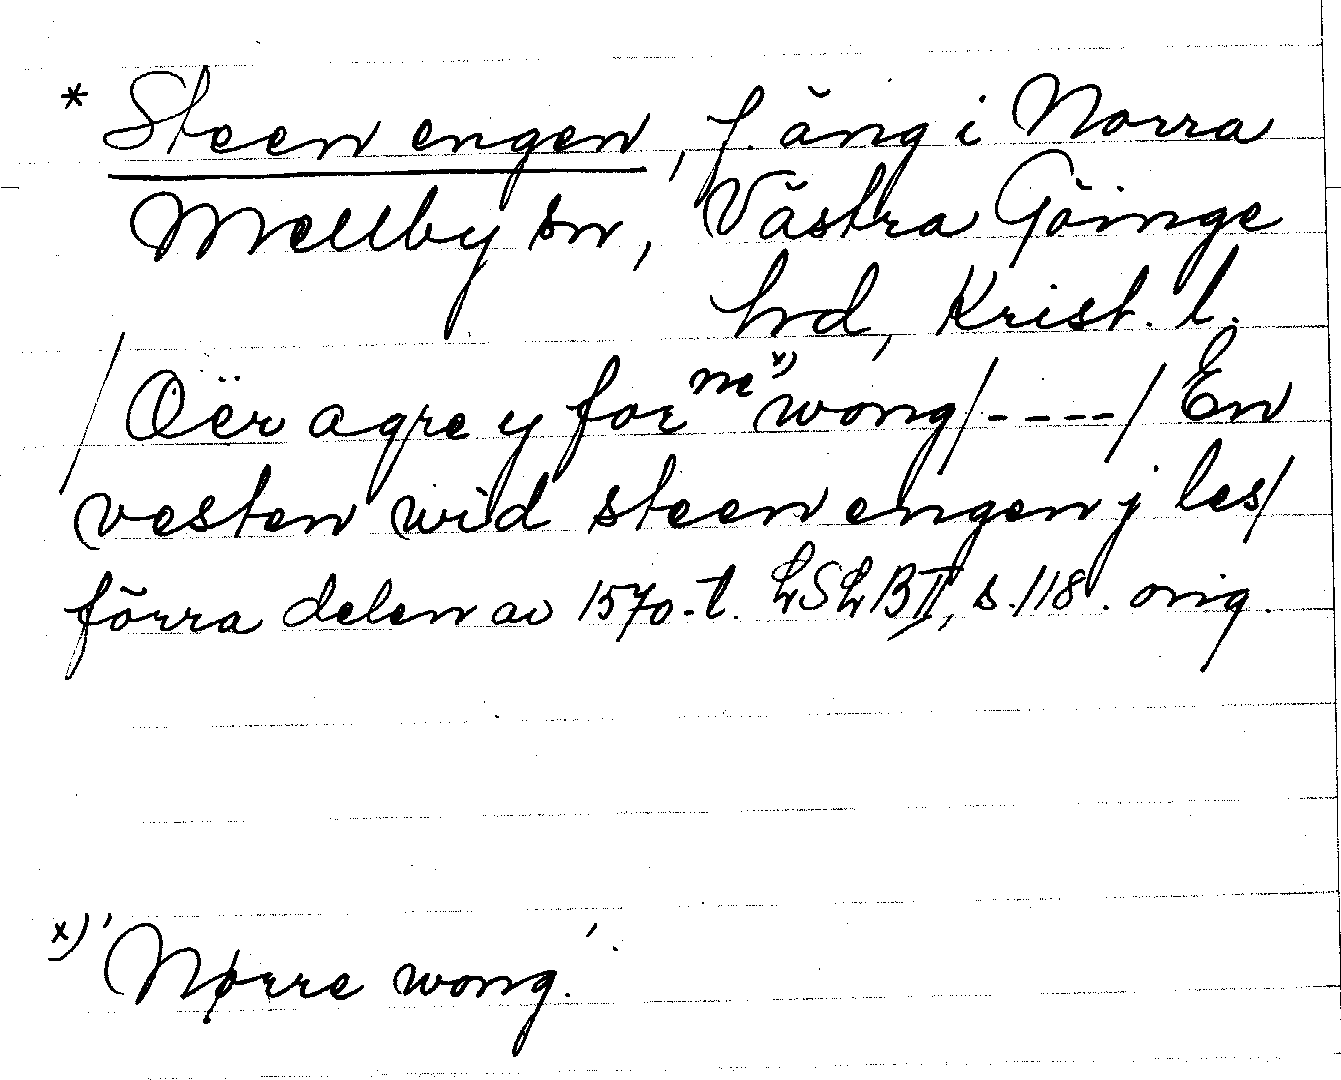 * Steen engen, f. äng i Norra
Mellby sn, Västra Göinge
hrd, Krist. l.
/Oër agre y for me x) wong/----/ En
vesten wid steen engen j les/
förra delen av 1570-t. LSLB II, s. 118. orig.
x) 'Nørre wong.'